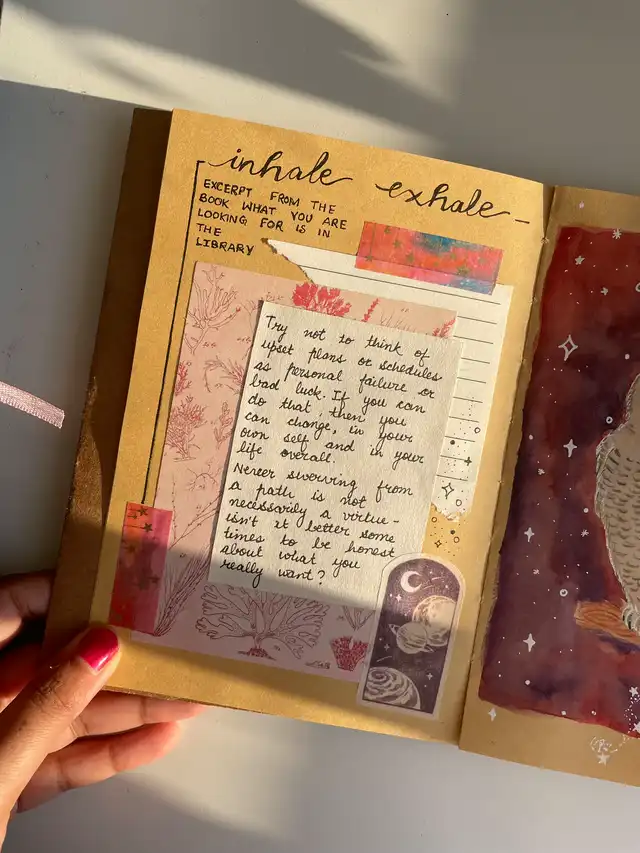 inhale exhale
EXCERPT FROM THE
BOOK WHAT YOU ARE
LOOKING FOR IS IN
THE
LIBRARY
Try not to think of
upset plans or schedules
as personal failure or
bad luck. If you can
do that, then you
can change, in your
own self and in your
life overall.
Never swerving from
a path is not
necessarily a virtue-
isn't it better some
times to be honest
about what you
really want?